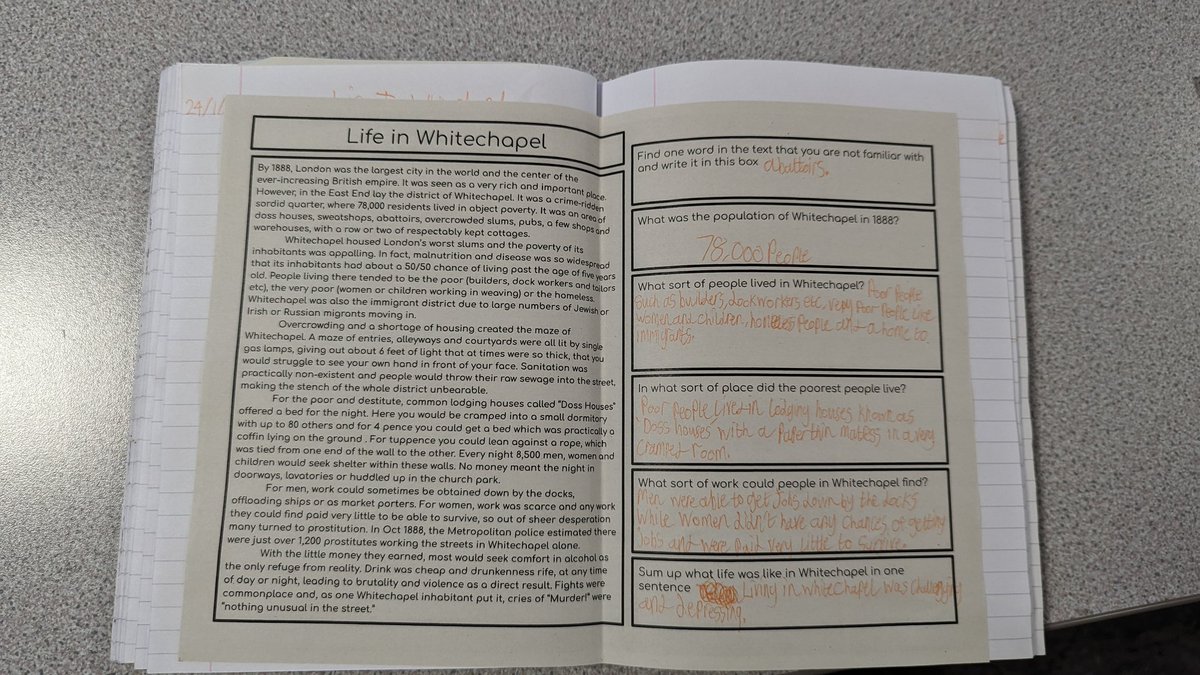 24/1
Life in Whitechapel
By 1888, London was the largest city in the world and the center of the
ever-increasing British empire. It was seen as a very rich and important place.
However, in the East End lay the district of Whitechapel. It was a crime-ridden
sordid quarter, where 78,000 residents lived in abject poverty. It was an area of
doss houses, sweatshops, abattoirs, overcrowded slums, pubs, a few shops and
warehouses, with a row or two of respectably kept cottages.
Whitechapel housed London's worst slums and the poverty of its
inhabitants was appalling. In fact, malnutrition and disease was so widespread
that its inhabitants had about a 50/50 chance of living past the age of five years
old. People living there tended to be the poor (builders, dock workers and tailors
etc), the very poor (women or children working in weaving) or the homeless.
Whitechapel was also the immigrant district due to large numbers of Jewish or
Irish or Russian migrants moving in.
Overcrowding and a shortage of housing created the maze of
Whitechapel. A maze of entries, alleyways and courtyards were all lit by single
gas lamps, giving out about 6 feet of light that at times were so thick, that you
would struggle to see your own hand in front of your face. Sanitation was
practically non-existent and people would throw their raw sewage into the street,
making the stench of the whole district unbearable.
For the poor and destitute, common lodging houses called "Doss Houses"
offered a bed for the night. Here you would be cramped into a small dormitory
with up to 80 others and for 4 pence you could get a bed which was practically a
coffin lying on the ground . For tuppence you could lean against a rope, which
was tied from one end of the wall to the other. Every night 8,500 men, women and
children would seek shelter within these walls. No money meant the night in
doorways, lavatories or huddled up in the church park.
For men, work could sometimes be obtained down by the docks,
offloading ships or as market porters. For women, work was scarce and any work
they could find paid very little to be able to survive, so out of sheer desperation
many turned to prostitution. In Oct 1888, the Metropolitan police estimated there
were just over 1,200 prostitutes working the streets in Whitechapel alone.
With the little money they earned, most would seek comfort in alcohol as
the only refuge from reality. Drink was cheap and drunkenness rife, at any time
of day or night, leading to brutality and violence as a direct result. Fights were
commonplace and, as one Whitechapel inhabitant put it, cries of "Murder!" were
"nothing unusual in the street."
Find one word in the text that you are not familiar with
and write it in this box abattoirs.
What was the population of Whitechapel in 1888?
78,000 People
What sort of people lived in Whitechapel? Poor People
such as builders, dock workers etc, very Poor People like
women and children, homeless People and a home to
immigrants.
In what sort of place did the poorest people live?
Poor People lived in lodging houses known as
Doss houses with a Paper thin matless in a very
cramped room.
What sort of work could people in Whitechapel find?
Men were able to get Jobs down by the docks
while women didn't have any chances of getting
Jobs and were Paid very little to survive.
Sum up what life was like in Whitechapel in one
sentence Living in whitechapel was challenging
and depressing.